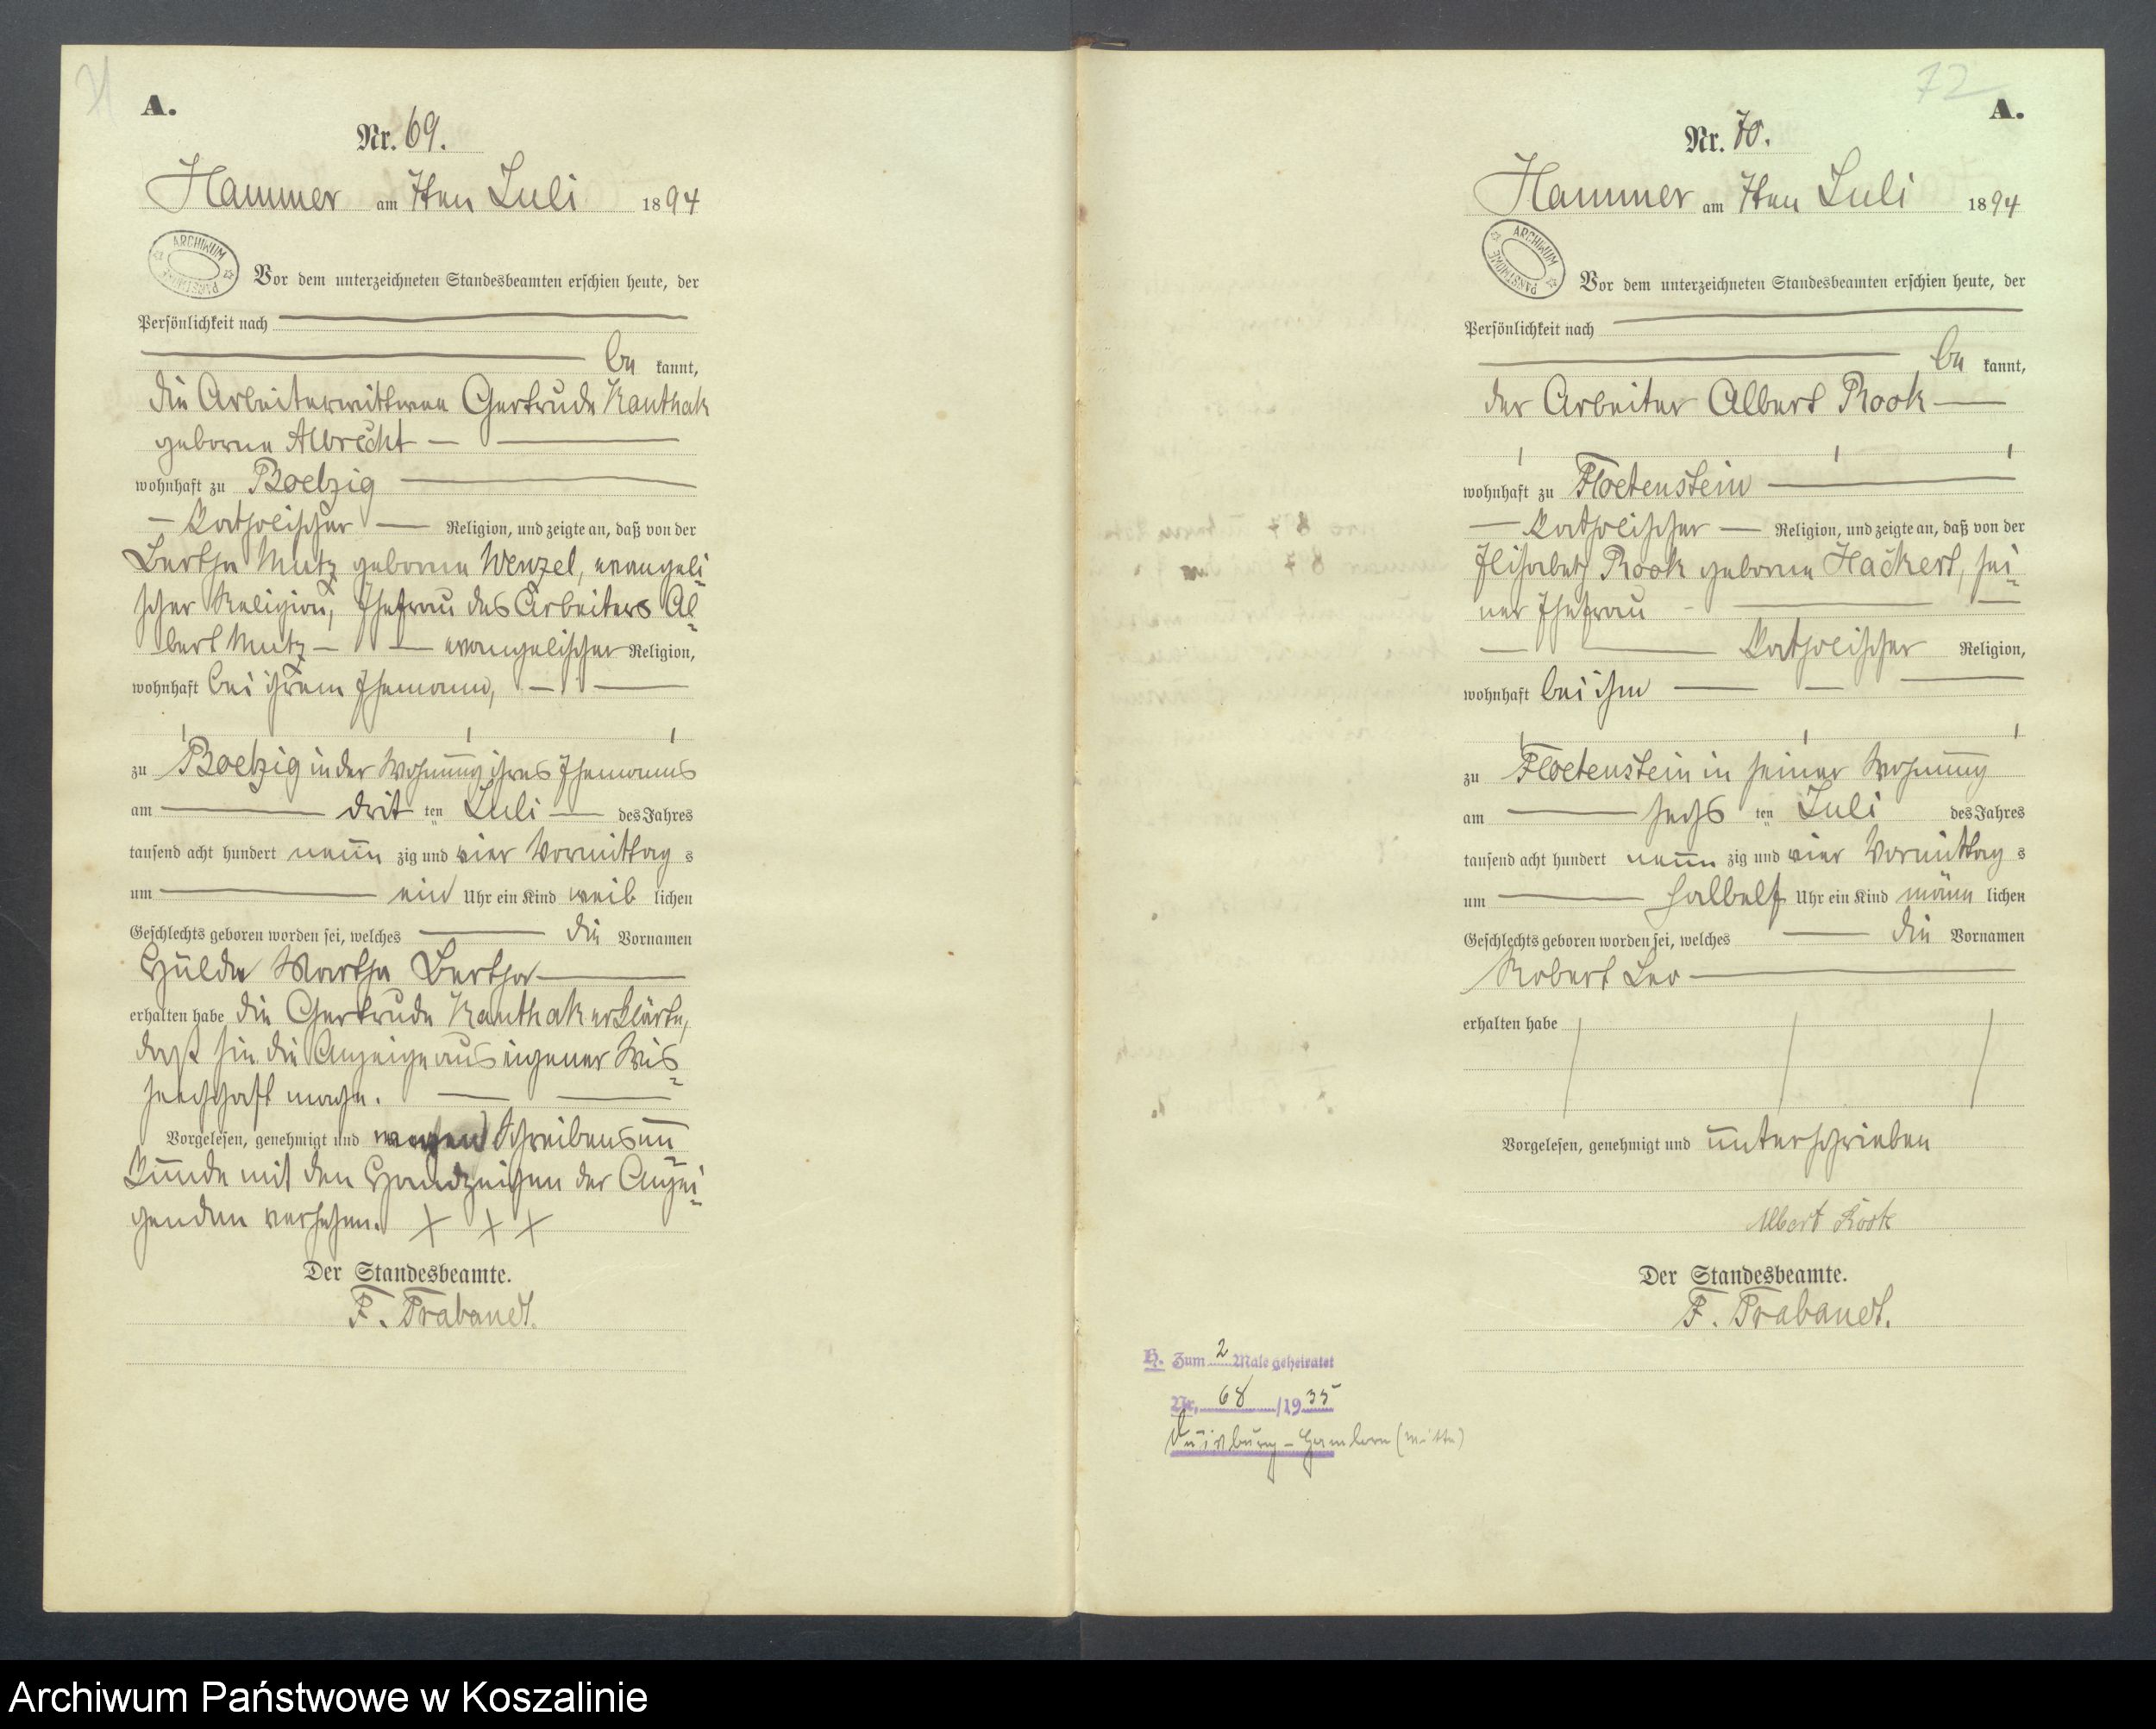 71
A.
Nr. 69.
Hammer am 7ten Juli 1894
ARCHIWUM PAŃSTWOWE
Vor dem unterzeichneten Standesbeamten erschien heute, der
Persönlichkeit nach
be kannt,
die Arbeiterwittwe Gertrude Kanthak
geborne Albrecht
wohnhaft zu Boelzig
katholischer Religion, und zeigte an, daß von der
Bertha Mutz geborene Wenzel, evangeli-
scher Religion, Ehefrau des Arbeiters Al-
bert Mutz evangelischer Religion,
wohnhaft bei ihrem Ehemann,
zu Boelzig in der Wohnung ihres Ehemanns
am drit ten Juli des Jahres
tausend acht hundert neun zig und vier Vormittag s
um ein Uhr ein Kind weib lichen
Geschlechts geboren worden sei, welches die Vornamen
Hulda Martha Bertha
erhalten habe die Gertrude Kanthak erklärte,
daß sie die Anzeige aus eigener Wis-
senschaft mache.
Vorgelesen, genehmigt und wegen Schreibensun-
kunde mit den Handzeichen der Anzei-
genden versehen. X X X
Der Standesbeamte.
F. Trabandt.
72
A.
Nr. 70.
Hammer am 7ten Juli 1894
ARCHIWUM PAŃSTWOWE
Vor dem unterzeichneten Standesbeamten erschien heute, der
Persönlichkeit nach
be kannt,
der Arbeiter Albert Rook
wohnhaft zu Floetenstein
katholischer Religion, und zeigte an, daß von der
Elisabeth Rook geborne Hackert, sei-
ner Ehefrau
katholischer Religion,
wohnhaft bei ihm
zu Floetenstein in seiner Wohnung
am sechs ten Juli des Jahres
tausend acht hundert neun zig und vier Vormittag s
um halbelf Uhr ein Kind männ lichen
Geschlechts geboren worden sei, welches die Vornamen
Robert Leo
erhalten habe
Vorgelesen, genehmigt und unterschrieben
Albert Rook
Der Standesbeamte.
F. Trabandt.
H. Zum 2 Male geheiratet
Nr. 68 /1935
Duisburg-Hamborn (Mitte)
Archiwum Państwowe w Koszalinie